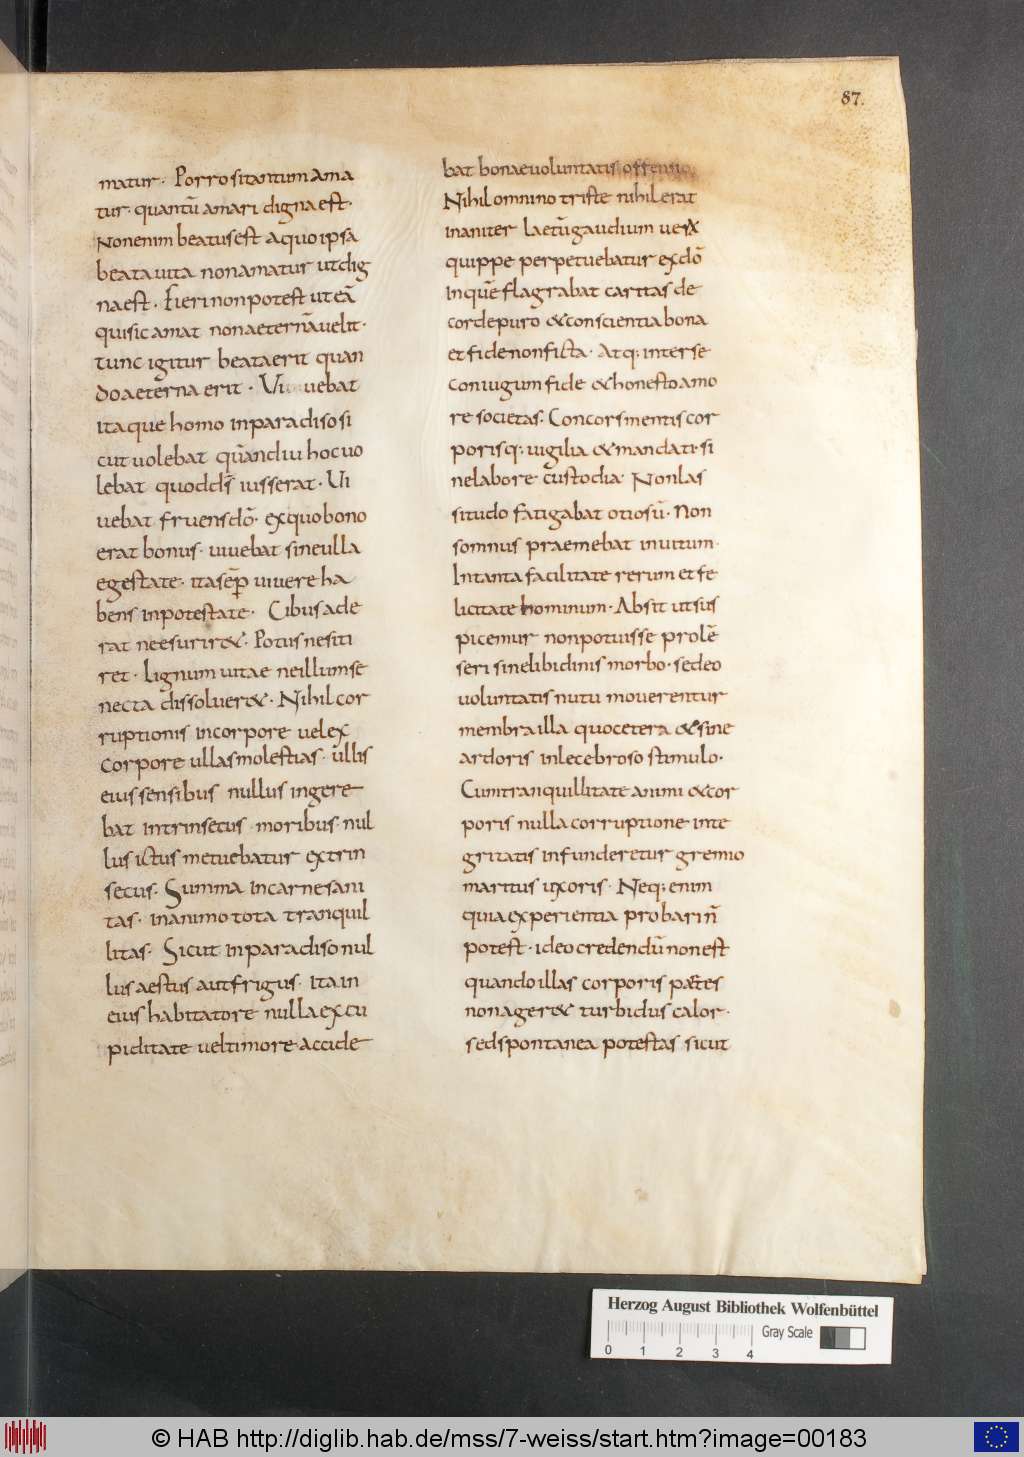 87.
matur· Porro si tantum ama
tur· quantū amari digna est·
Non enim beatus est a quo ipsa
beata uita non amatur ut dig
na est· Fieri non potest ut eā
qui sic amat non aeternā uelit·
tunc igitur beata erit quan
do aeterna erit· Vi uebat
itaque homo in paradiso si
cut uolebat quāndiu hoc uo
lebat quod d̄s iusserat· Vi
uebat fruens dō· ex quo bono
erat bonus· uiuebat sine ulla
egestate· ita semꝑ uiuere ha
bens in potestate· Cibus ade
rat ne esurir&· Potus ne siti
ret· Lignum uitae ne illum se
necta dissoluer&· Nihil cor
ruptionis in corpore uel ex
corpore ullas molestias· ullis
eius sensibus nullus ingere
bat intrinsecus moribus· nul
lus ictus metuebatur extrin
secus· Summa in carne sani
tas· in animo tota tranquil
litas· Sicut in paradiso nul
lus aestus aut frigus· ita in
eius habitatore nulla ex cu
piditate uel timore accide
bat bonae uoluntatis offensio
Nihil omnino triste nihil erat
inaniter laetū gaudium uerx
quippe perpetuebatur ex dō
in quē flagrabat caritas de
corde purō & conscientia bona
et fide non ficta· Atq; inter se
coniugum fide & honesto amo
re societas. Concors mentis cor
porisq; uigilia & mandati· si
ne labore custodia· Non las
situdo fatigabat otiosū· Non
somnus praemebat inuitum·
In tanta facilitate rerum et fe
licitate hominum· Absit ut sus
picemur non potuisse prolē
seri sine libidinis morbo· sed eo
uoluntatis nutu mouerentur
membra illa quo cetera & sine
ardoris inlecebroso stimulo·
Cum tranquillitate animi & cor
poris nulla corruptione inte
gritatis infunderetur gremio
maritus uxoris· Neq; enim
quia experientia probari n̄
potest· ideo credendū non est
quando illas corporis partes
non ager& turbidus calor·
sed spontanea potestas sicut
Herzog August Bibliothek Wolfenbüttel
Gray Scale
0 1 2 3 4
© HAB http://diglib.hab.de/mss/7-weiss/start.htm?image=00183